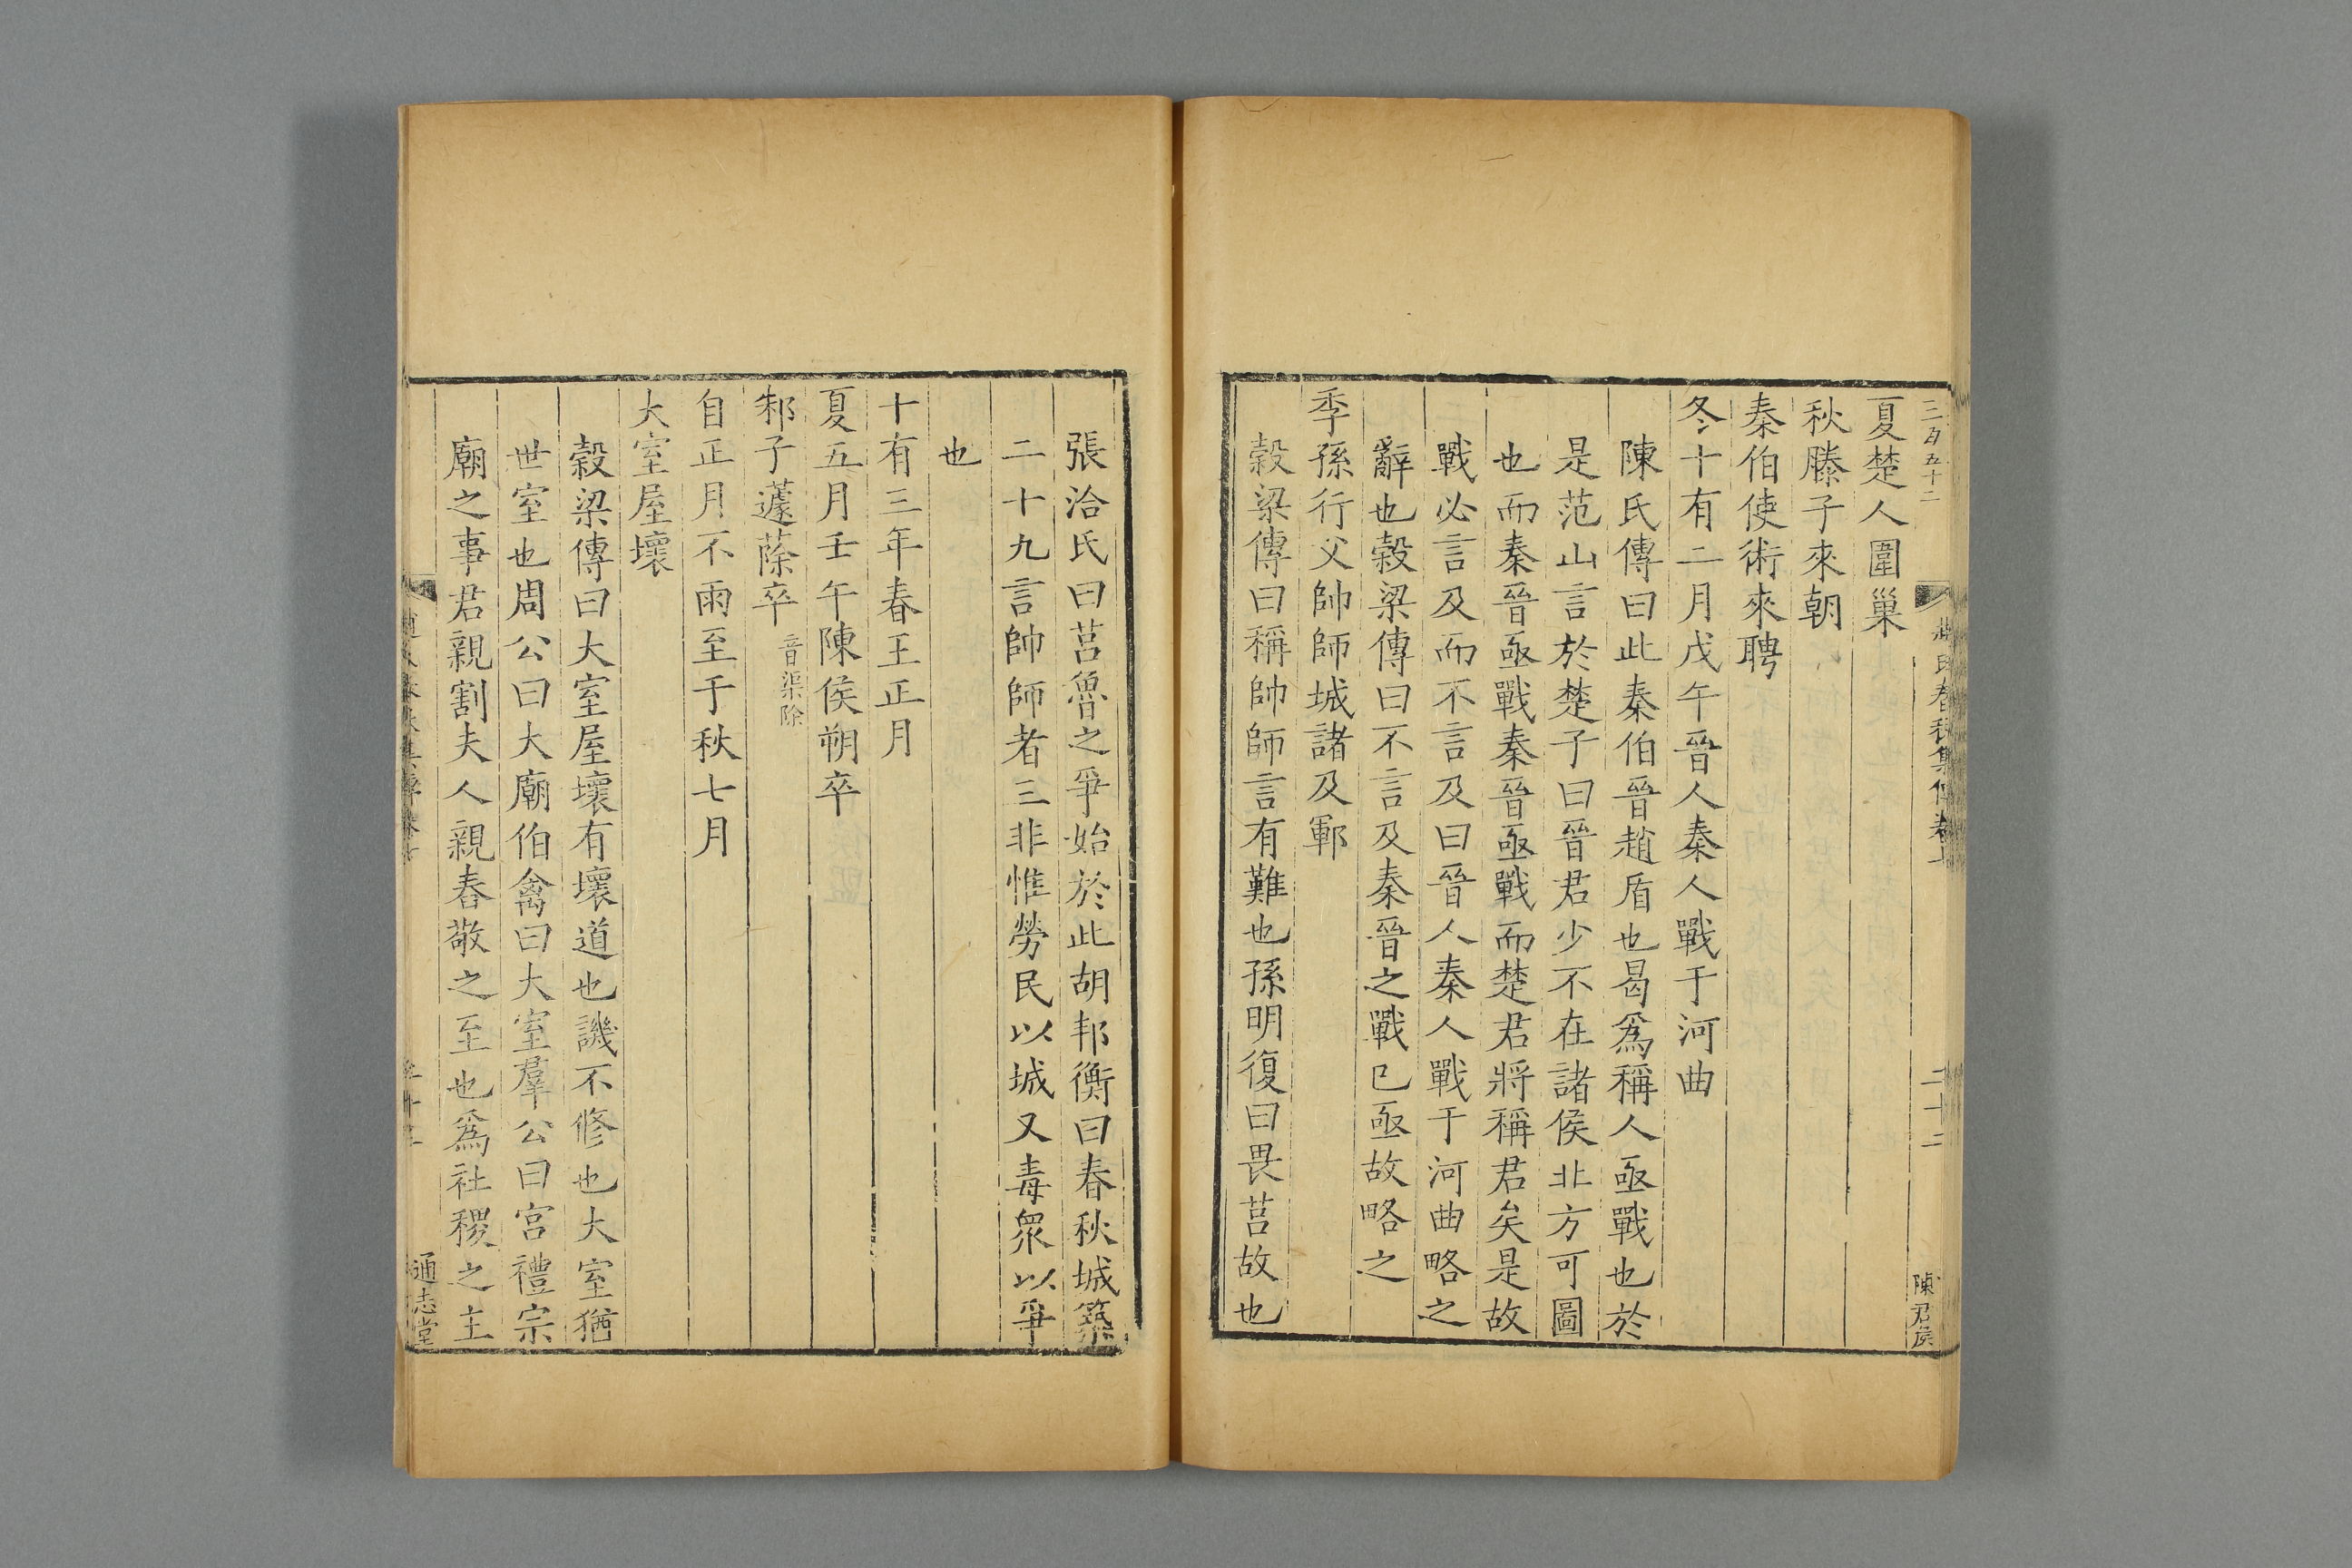 三百五十二
春秋集傳卷十
二十二
陳君侯
夏楚人圍巢
秋滕子來朝
秦伯使術來聘
冬十有二月戊午晉人秦人戰于河曲
陳氏傳曰此秦伯晉趙盾也曷爲稱人亟戰也於
是范山言於楚子曰晉君少不在諸侯北方可圖
也而秦晉亟戰秦晉亟戰而楚君將稱君矣是故
戰必言及而不言及曰晉人秦人戰于河曲略之
辭也穀梁傳曰不言及秦晉之戰已亟故略之
季孫行父帥師城諸及鄆
穀梁傳曰稱帥師言有難也孫明復曰畏莒故也
張洽氏曰莒魯之爭始於此胡邦衡曰春秋城築
二十九言帥師者三非惟勞民以城又毒衆以爭
也
十有三年春王正月
夏五月壬午陳侯朔卒
邾子蘧蒢卒 音渠除
自正月不雨至于秋七月
大室屋壞
穀梁傳曰大室屋壞有壞道也譏不修也大室猶
世室也周公曰大廟伯禽曰大室羣公曰宮禮宗
廟之事君親割夫人親舂敬之至也爲社稷之主
通志堂